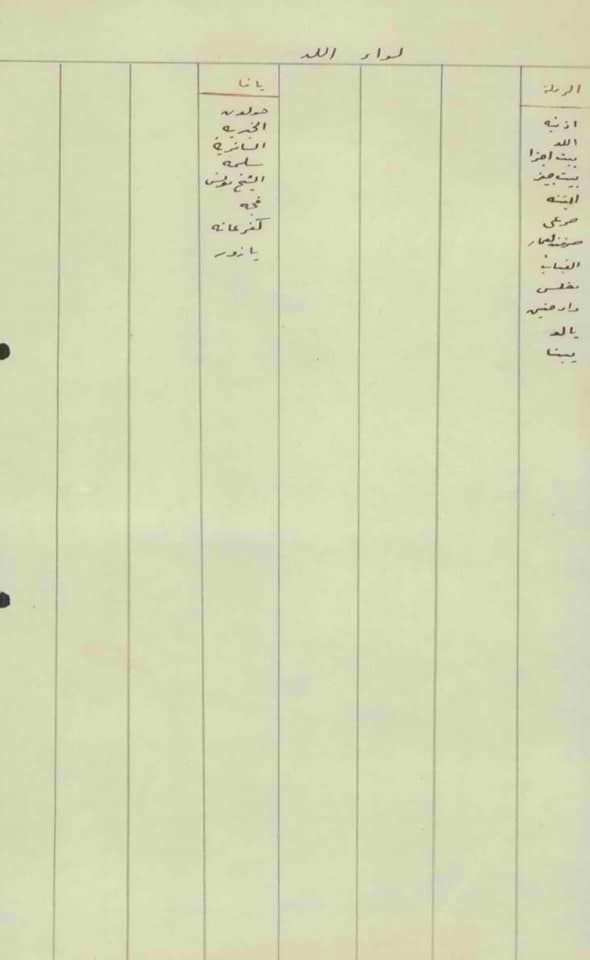 لواء اللد
الرملة
اذنبه
اللد
بيت جيز
التينه
صرعى
صرفند العمار
القباب
مغلس
وادحنين
يالو
يبنا
يافا
حولون
الخيريه
السافرية
سلمه
الشيخ مونس
فجه
كفرعانه
يازور